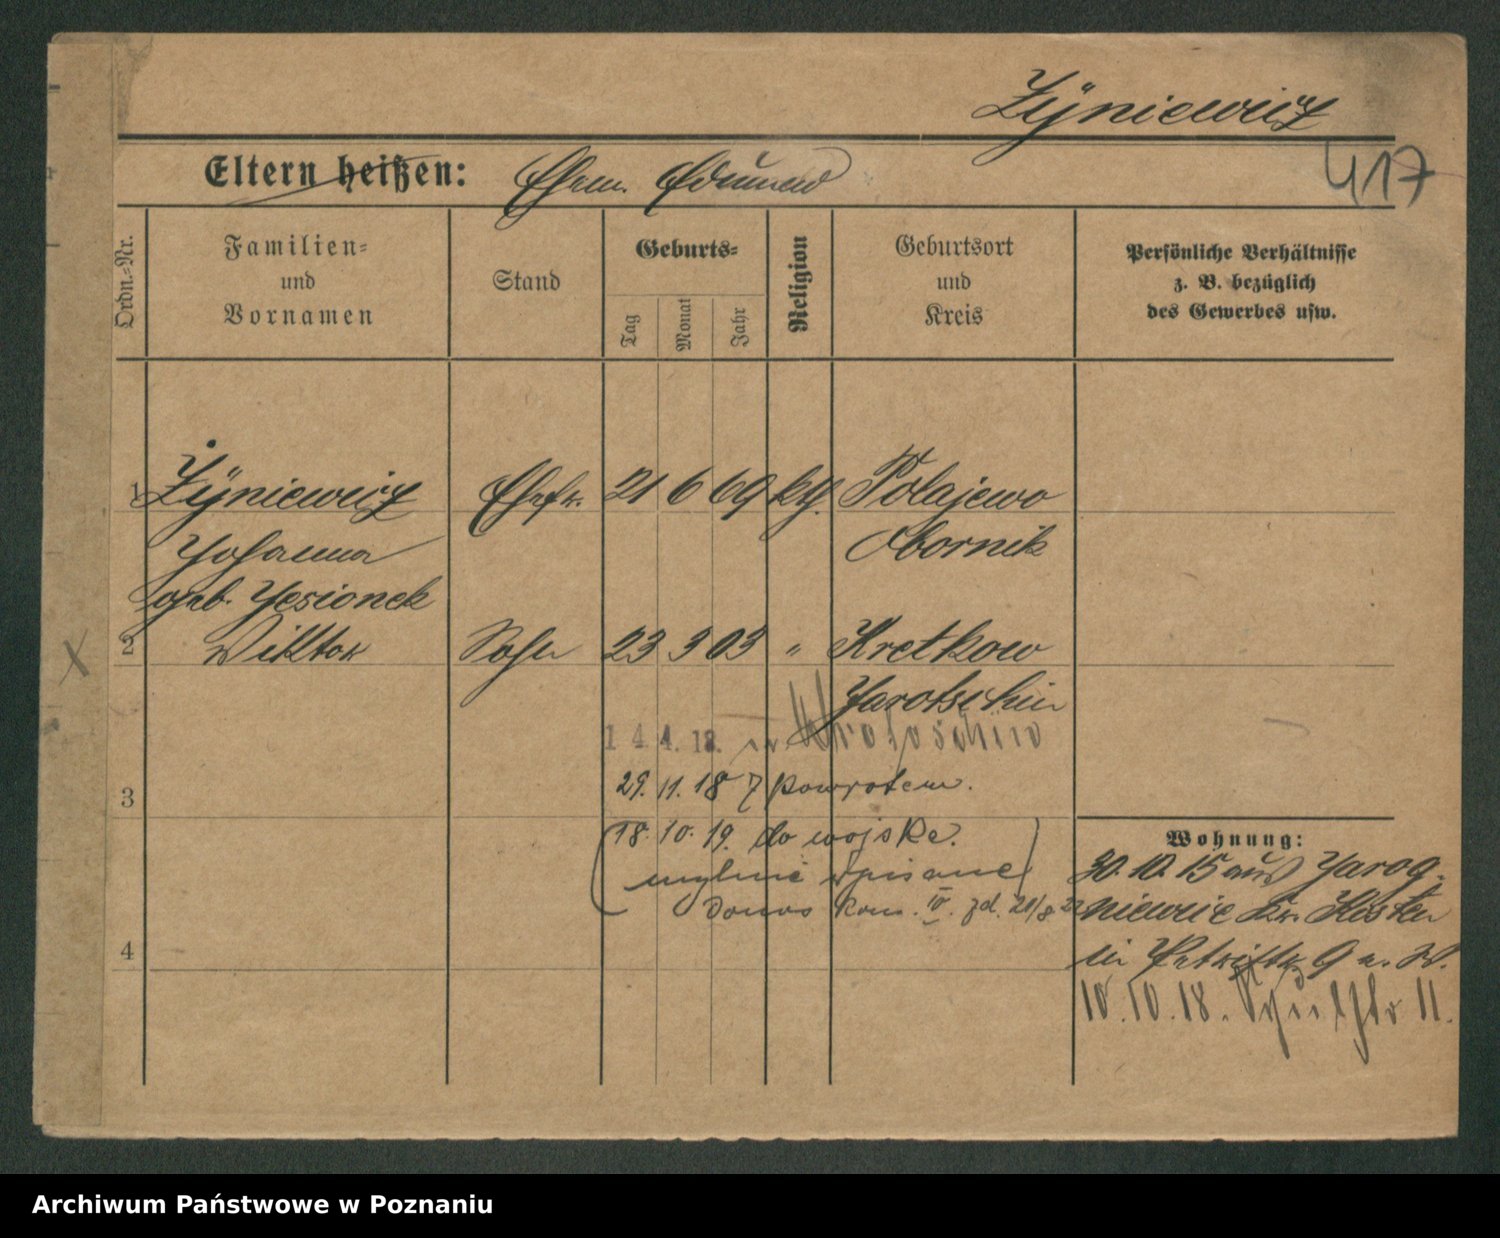 Zÿniewicz
417
Eltern heißen: Ehem. Edmund
Ordn.-Nr.
Familien-
und
Vornamen
Stand
Geburts-
Tag
Monat
Jahr
Religion
Geburtsort
und
Kreis
Persönliche Verhältnisse
z. B. bezüglich
des Gewerbes usw.
1 Żÿniewicz Ehefr. 21 6 69 kth. Polajewo
Johanna Obornik
geb. Jesionek
2 Wiktor Sohn 23 3 03 " Kretkow
X
Jarotschin
14 4. 18. Krotoschin
3
29. 11. 18 z powrotem.
18. 10. 19. do wojska.
mylnie wpisane
donos kom. IV. zd. 21/8 22
Wohnung:
30. 10. 15 aus Jarog-
niewice Kr. Kosten
in Patristr. 9 a. W.
4
10. 10. 18. Schulstr 11.
Archiwum Państwowe w Poznaniu